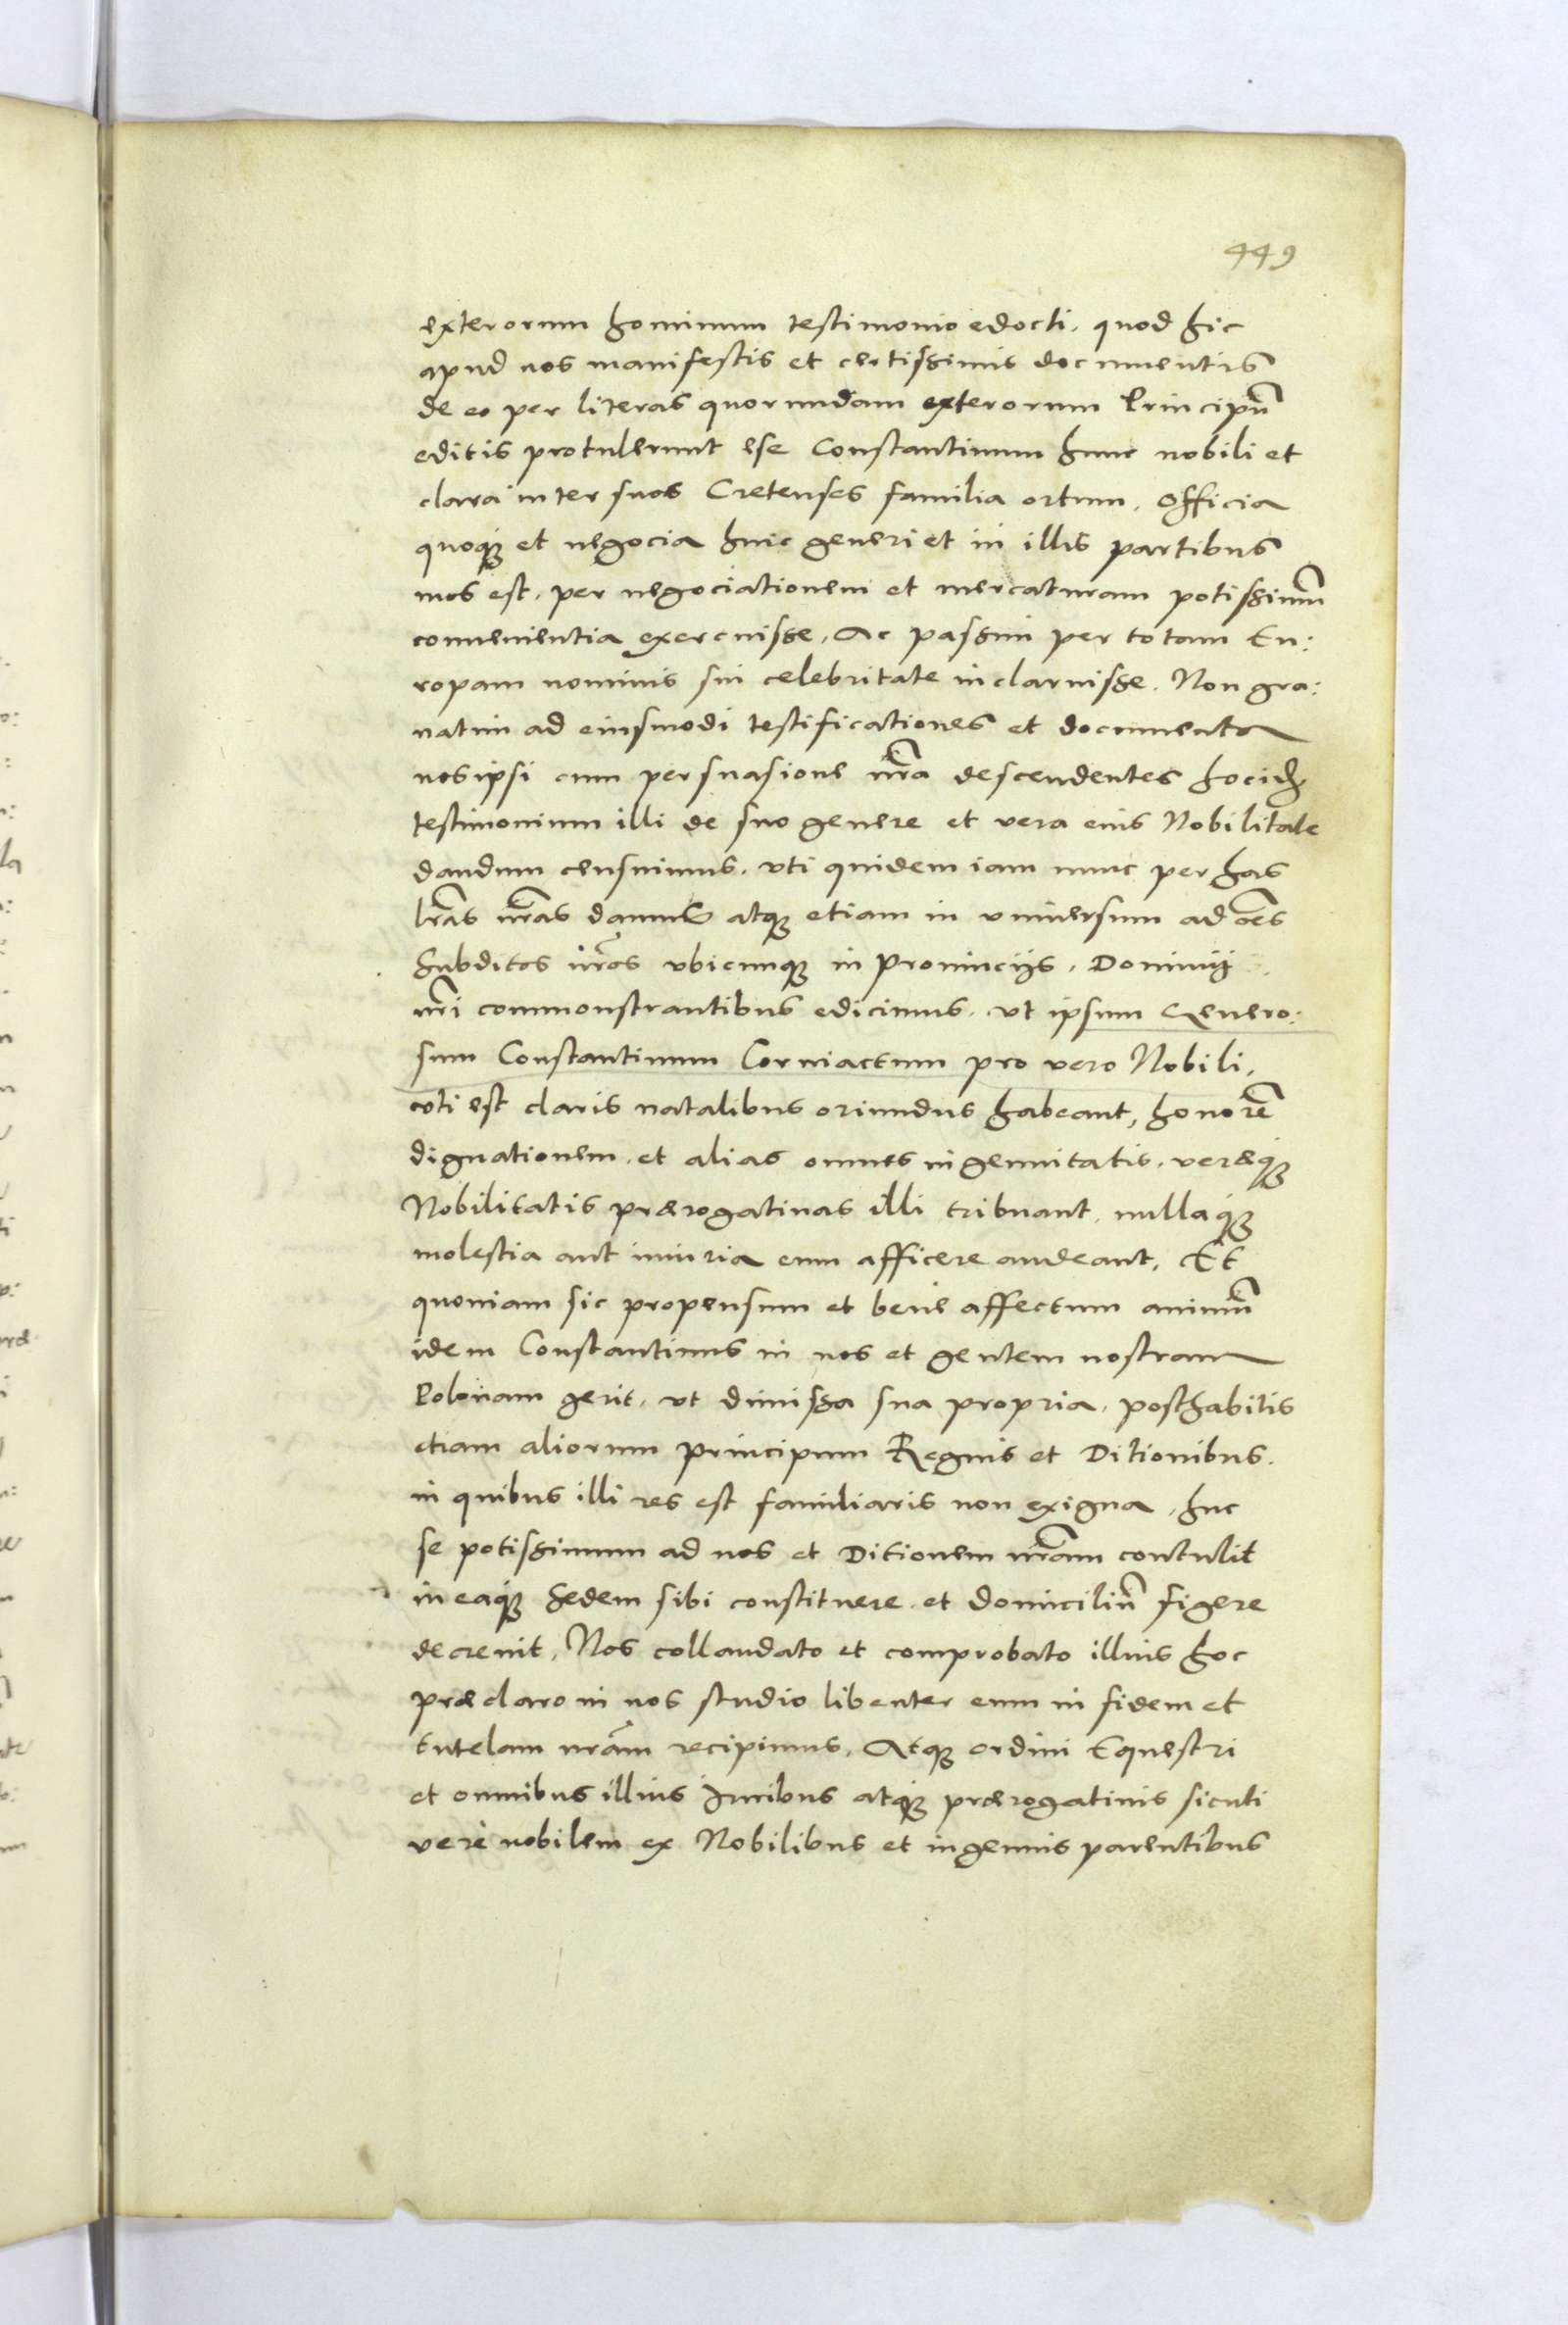 449
exterorum hominum testimonio edocti. quod hic
apud nos manifestis et certissimis documentis
de eo per literas quorundam exterorum Principū
editis protulerunt esse Constantinum hunc nobili et
clara inter suos Cretenses familia ortum. Officia
quoq; et negocia huic generi et in illis partibus
mos est. per negociationem et mercaturam potissimū
convenientia exercuisse. Ac passim per totam Eu:
ropam nominis sui celebritate inclaruisse. Non gra:
vatim ad eiusmodi testificationes et documenta
nos ipsi cum persuasione nr̄a descendentes hoc
testimonium illi de suo genere et vera eius Nobilitate
dandum censuimus. uti quidem iam nunc per has
lr̄as nr̄as damus atq; etiam in universum ad oēs
subditos nr̄os ubicunq; in provincijs. Dominij
nr̄i commonstrantibus edicimus. ut ipsum Genero:
sum Constantinum Corniactum pro vero Nobili,
uti est claris natalibus oriundus habeant, honorē
dignationem. et alias omnes ingenuitatis. veræq;
Nobilitatis prærogativas illi tribuant. nullaq;
molestia aut iniuria eum afficere audeant. Et
quoniam sic propensum et bene affectum animū
idem Constantinus in nos et gentem nostram
Polonam gerit. ut dimissa sua propria. posthabitis
etiam aliorum principum Regnis et Ditionibus.
in quibus illi res est familiaris non exigua. huc
se potissimum ad nos et Ditionem nr̄am contulit
in eaq; sedem sibi constituere. et domiciliū figere
decrevit. Nos collaudato et comprobato illius hoc
præclaro in nos studio libenter eum in fidem et
tutelam nr̄am recipimus. Atq; ordini Equestri
et omnibus illius Iuribus atq; prærogativis sicuti
vere nobilem ex Nobilibus et ingenuis parentibus